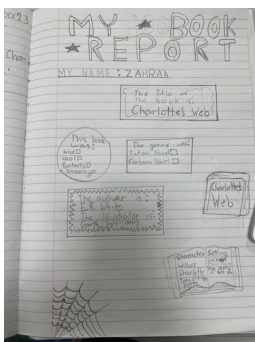 MY BOOK
REPORT
MY NAME: ZAHRAA
The Title of
the book is:
Charlotte's Web
This book
was:
Nice
cool
Fantastic
Amazing
The genre was:
Fiction Novel
Cartoon Novel
The author is:
E.B. White
The illustrator is:
Garth Williams
Charlotte's
Web
Character Setting
Wilbur
Charlotte